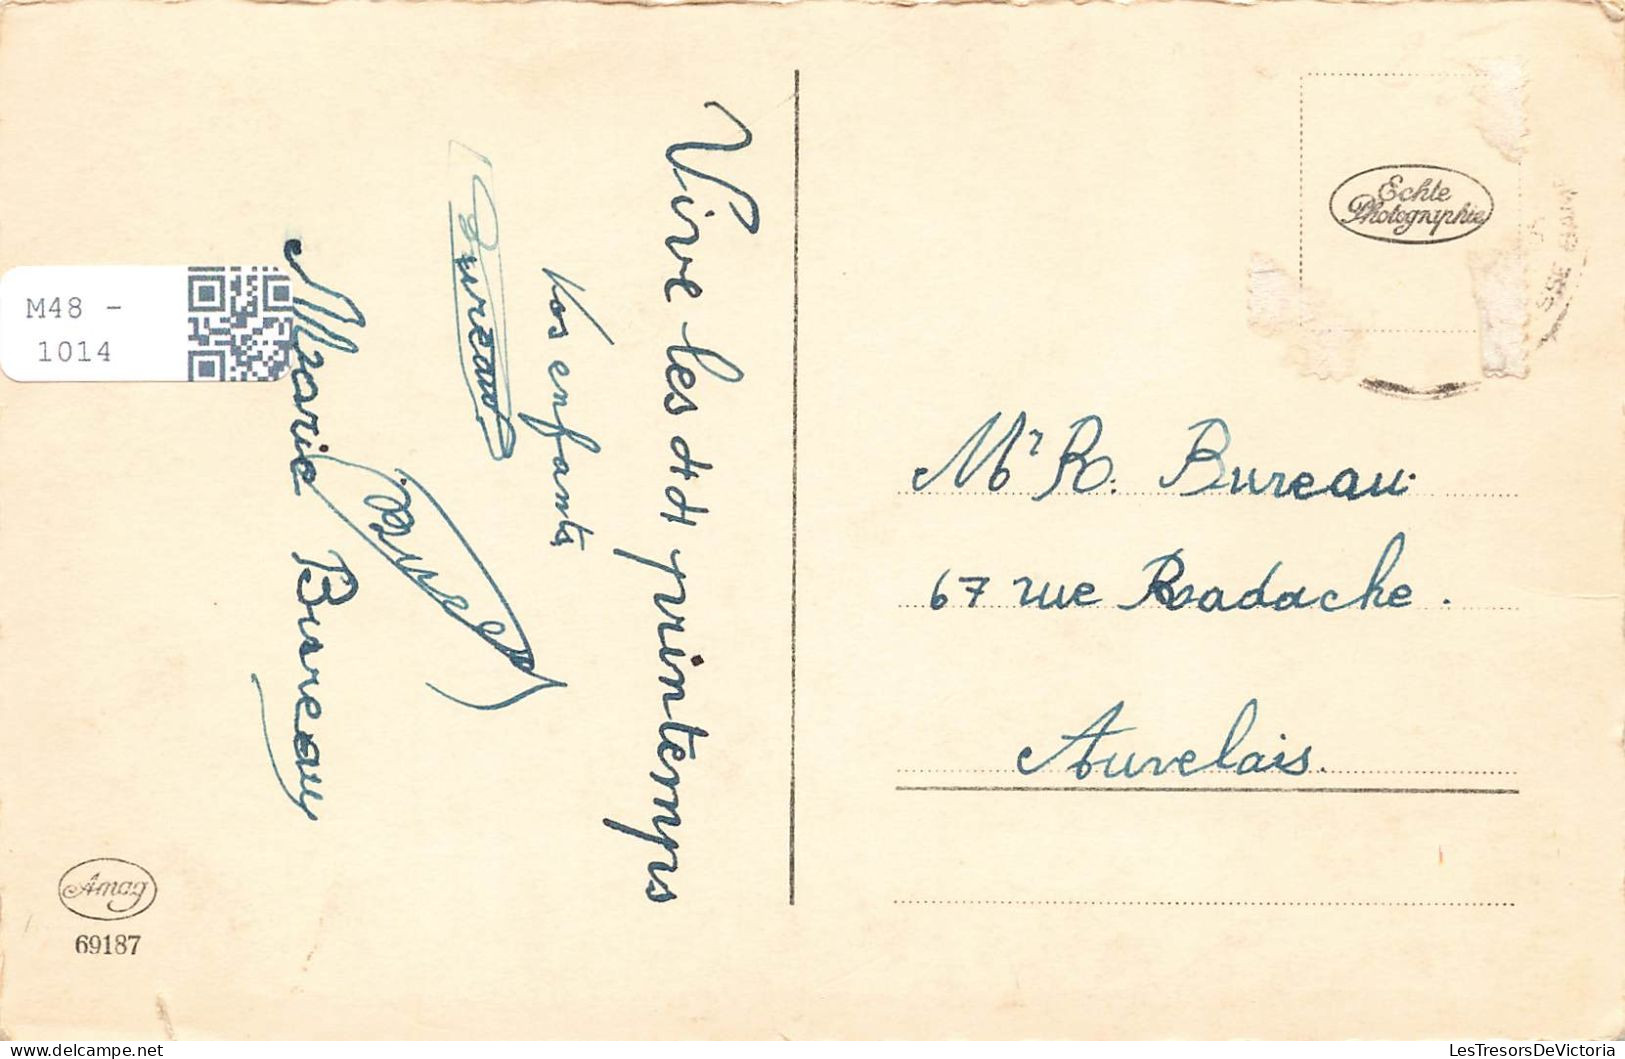 Vive les 44 printemps
Vos enfants
Bureau
Marie Bureau
M48 -
1014
Amag
69187
Echte
Photographie
Mr R. Bureau.
67 rue Radache.
Auvelais.
LesTresorsDeVictoria